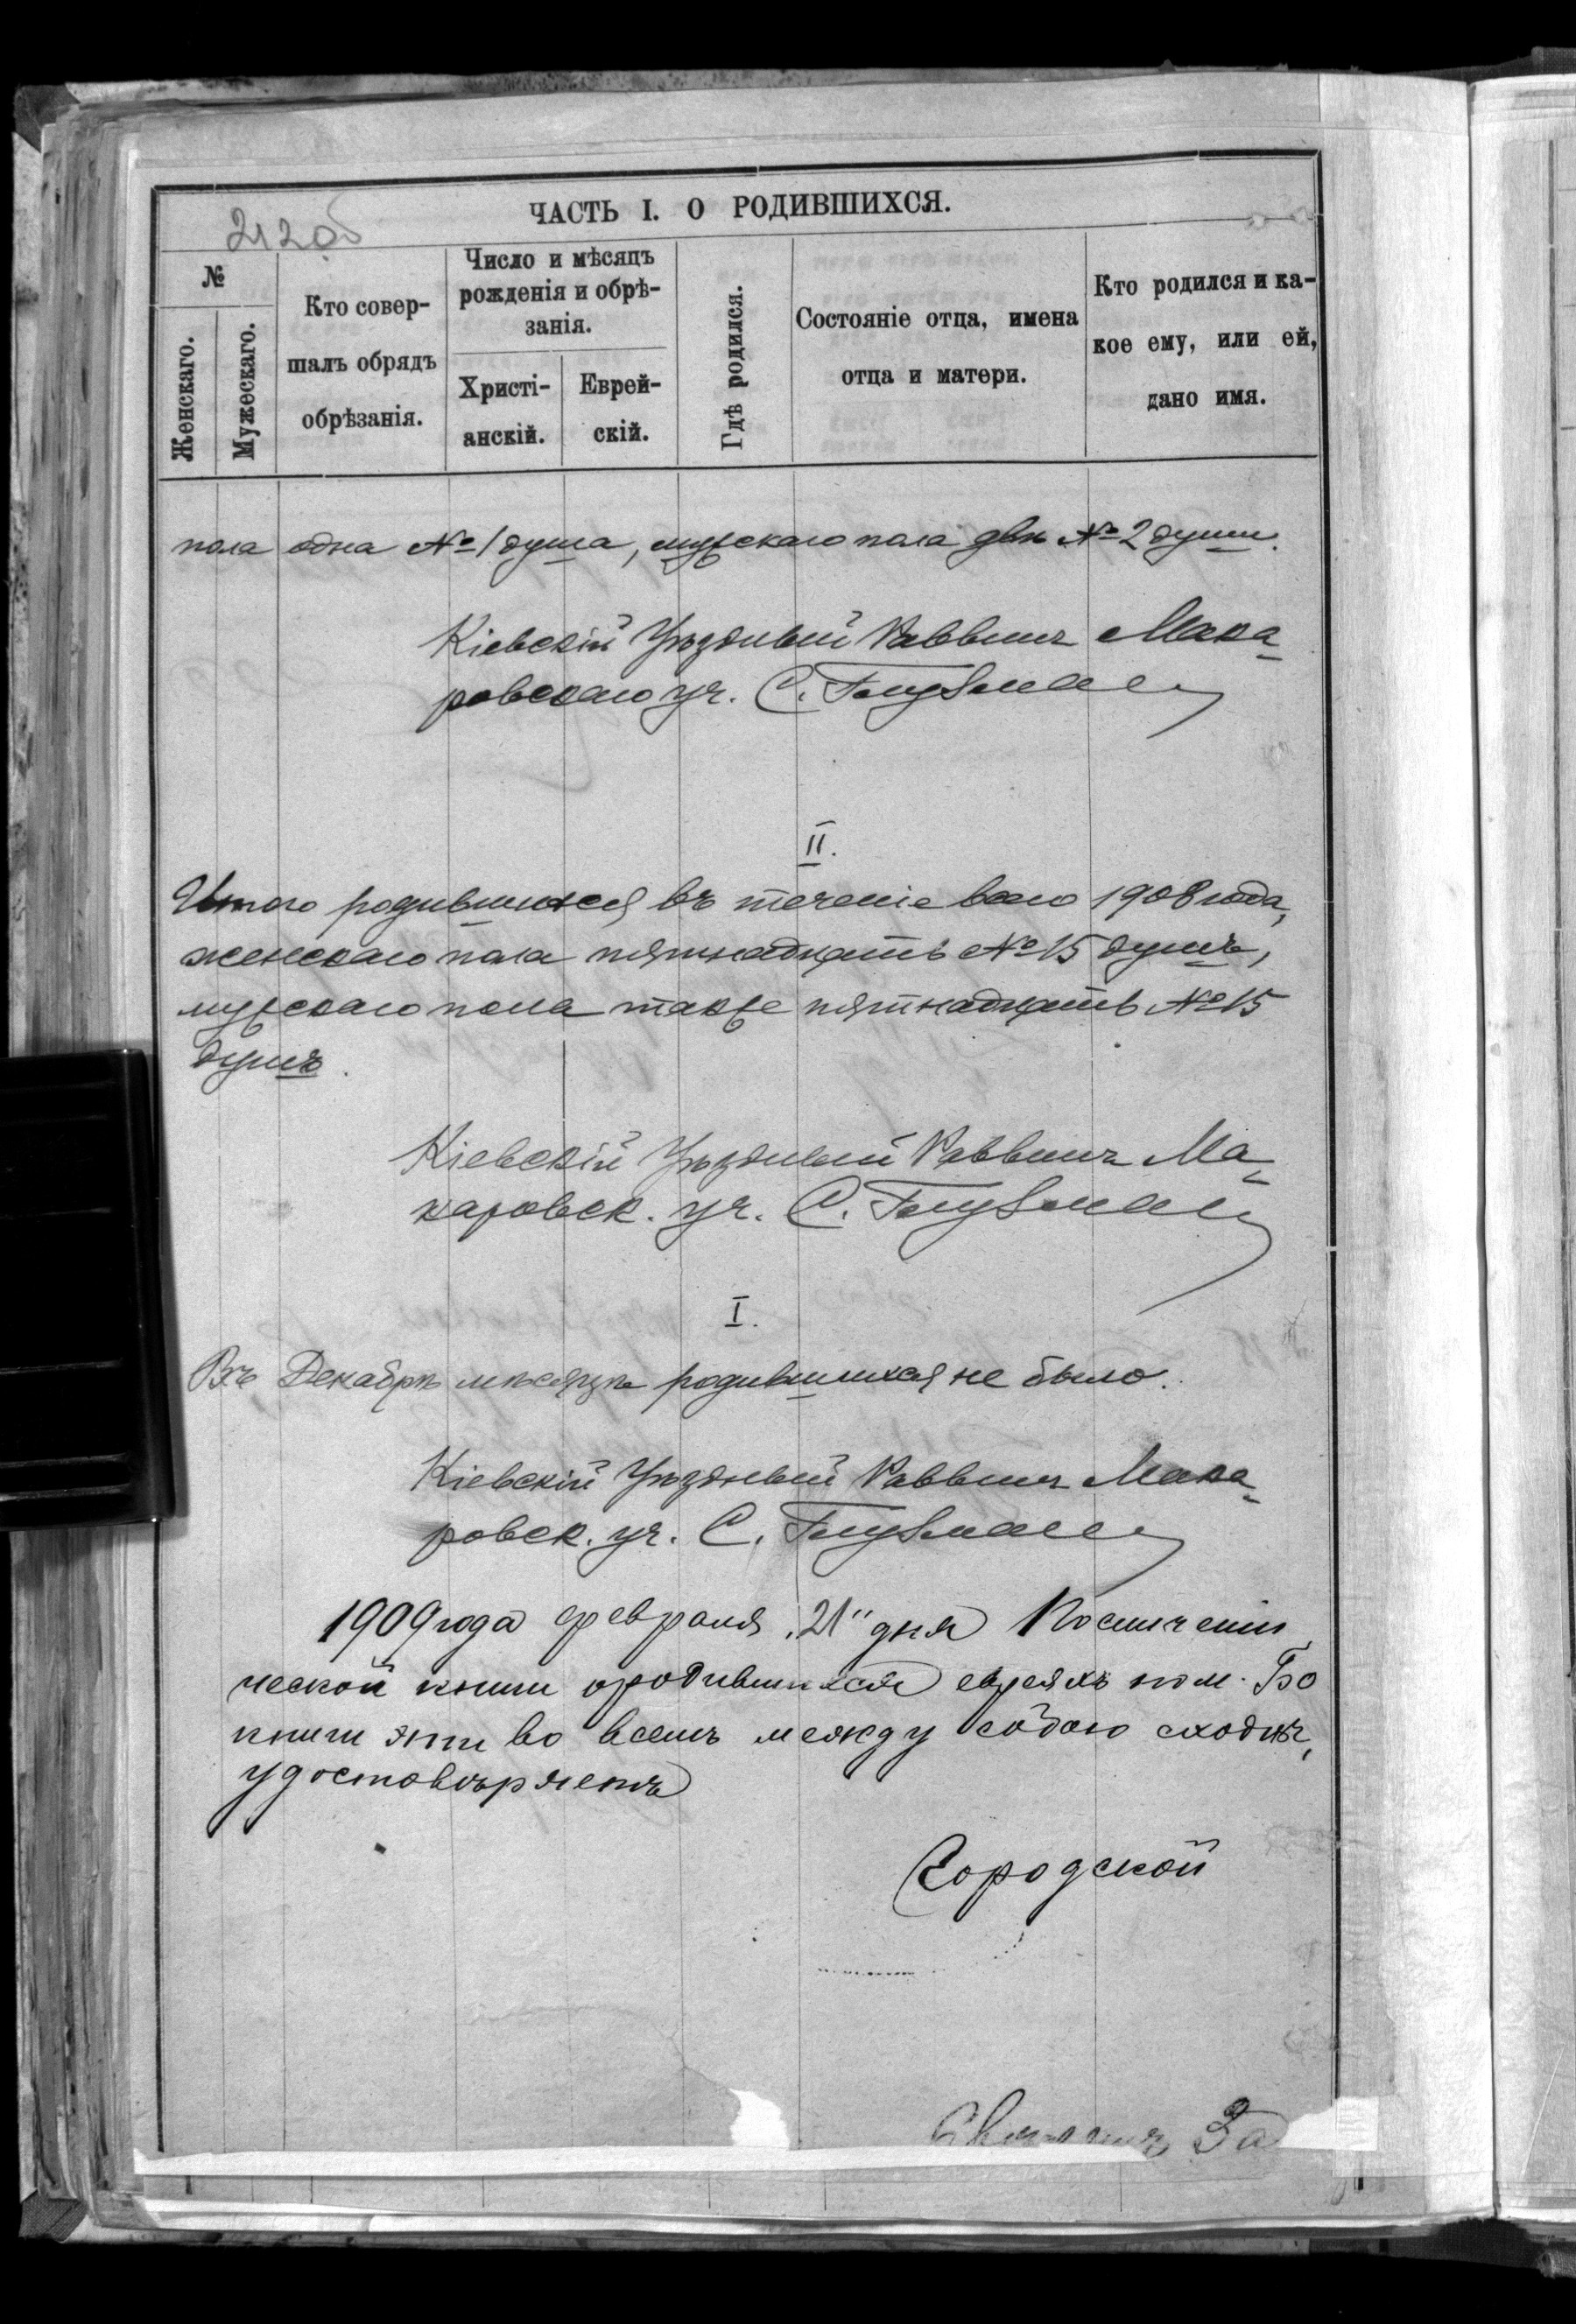 ЧАСТЬ I. О РОДИВШИХСЯ.
212об
№
Женскаго.
Мужескаго.
Кто совер-
шалъ обрядъ
обрѣзанія.
Число и мѣсяцъ
рожденія и обрѣ-
занія.
Христі-
анскій.
Еврей-
скій.
Гдѣ родился.
Состояніе отца, имена
отца и матери.
Кто родился и ка-
кое ему, или ей,
дано имя.
пола одна № 1 душа, мужскаго пола двѣ № 2 души.
Кіевскій Уѣздный Раввинъ Мака-
ровскаго уч. С.
II.
Итого родившихся въ теченіе всего 1908 года,
женскаго пола пятнадцать № 15 душъ,
мужскаго пола также пятнадцать № 15
душъ.
Кіевскій Уѣздный Раввинъ Ма-
каровск. уч. С.
I.
Въ Декабрѣ мѣсяцѣ родившихся не было.
Кіевскій Уѣздный Раввинъ Мака-
ровск. уч. С.
1909 года февраля „21" дня По сличеніи
ческой книги о родившихся евреяхъ по м. Бо
книги эти во всемъ между собою сходны,
удостовѣряетъ
Городской
За